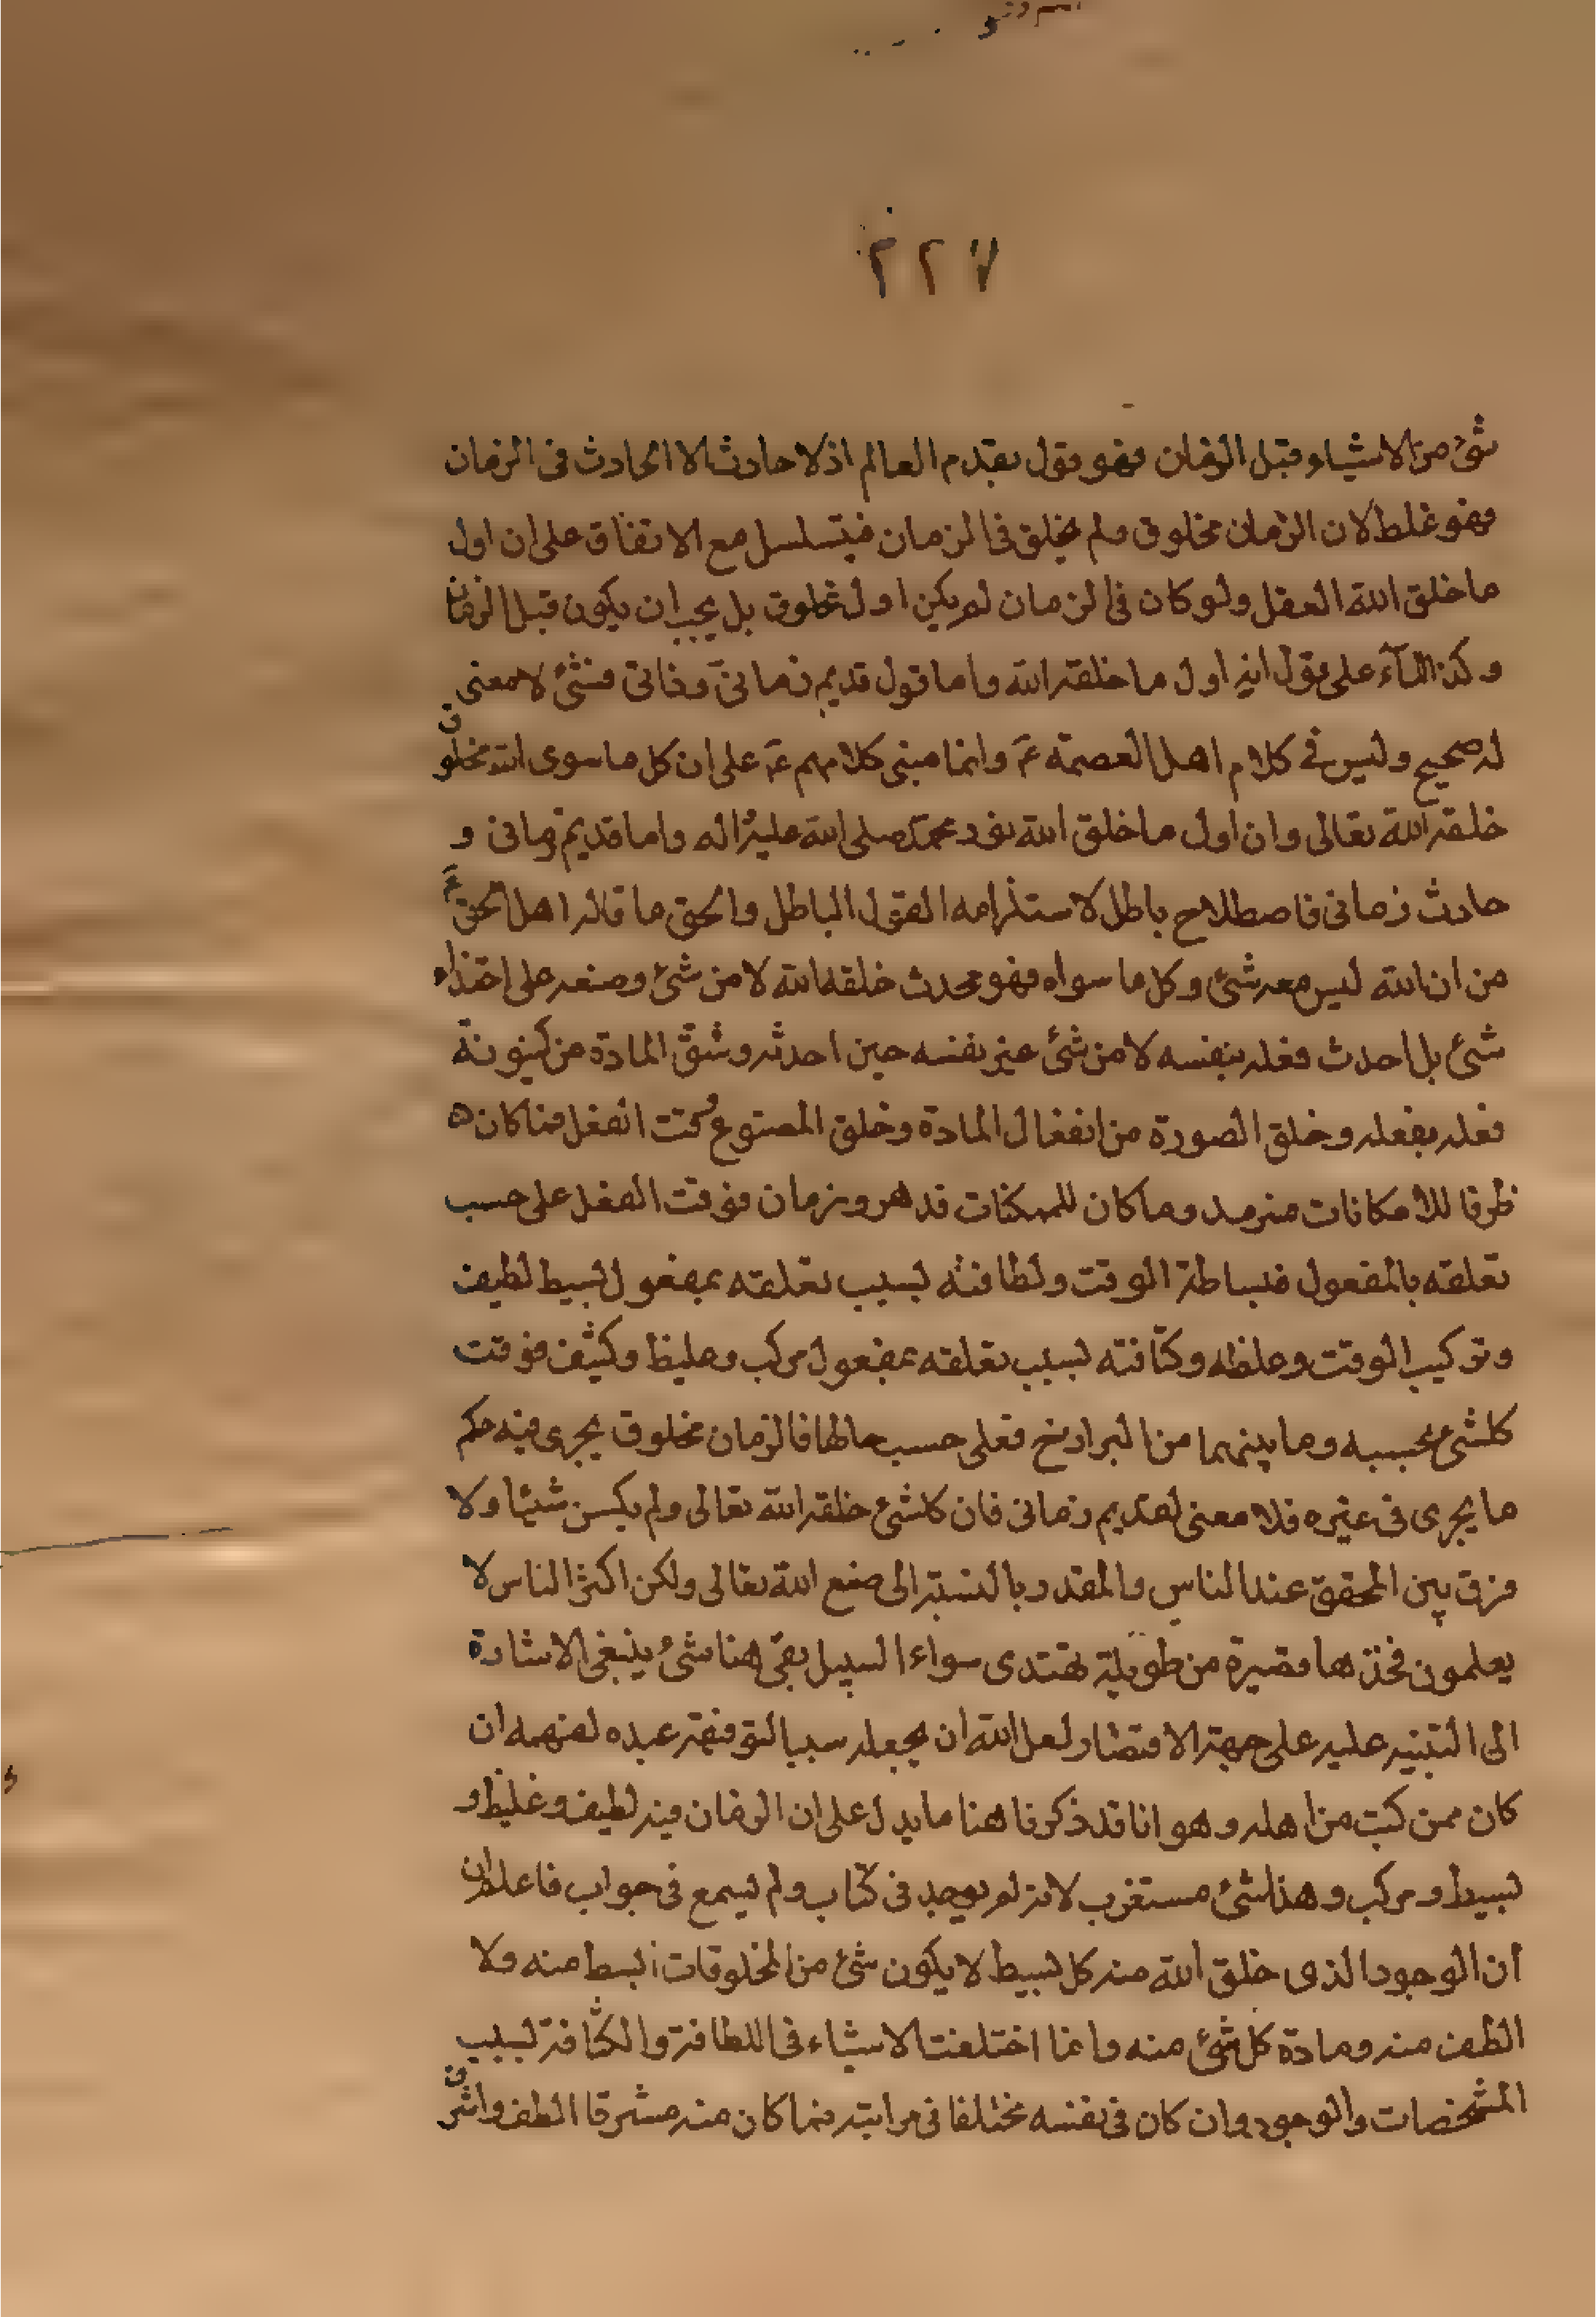 ٢٢٧
شئ من الاشياء قبل الزمان فهو يقول بقدم العالم اذ لا حادث الا الحادث فى الزمان
فهو غلط لان الزمان مخلوق ولم يخلق فى الزمان فيتسلسل مع الاتفاق على ان اول
ما خلق الله العقل ولو كان فى الزمان لم يكن اول مخلوق بل يجب ان يكون قبل الزمان
وكذا المآء على قول انه اول ما خلقه الله واما قول قديم زمانىّ وذاتى فشئ لا معنى
له صحيح وليس فى كلام اهل العصمة عۤ وانما مبنى كلامهم عۤ على ان كل ما سوى الله مخلوق
خلقه الله تعالى وان اول ما خلق الله نور محمد صلى الله عليه واله واما قديم زمانى و
حادث زمانى فاصطلاح باطل لاستلزامه القول الباطل والحق ما قاله اهل الحق عۤ
من ان الله ليس معه شئ وكل ما سواه فهو محدث خلقه الله لا من شئ وصنعه على احتذاء
شئ بل احدث فعله بنفسه لا من شئ غير نفسه حين احدثه وشقّ المادة من كينونة
فعله بفعله وخلق الصورة من انفعال المادة وخلق المصنوع وقت الفعل فما كان
ظرفا للامكانات سرمد وما كان للممكنات فدهر وزمان فوقت الفعل على حسب
تعلقه بالمفعول فبساطة الوقت ولطافته لسبب تعلقه بمفعول بسيط لطيف
وتركيب الوقت وغلظه وكثافته لسبب تعلقه بمفعول مركب وغليظ وكثيف فوقت
كلشئ بحسبه وما بينهما من البرازخ فعلى حسب حالها فالزمان مخلوق يجرى فيه حكم
ما يجرى فى غيره فلا معنى لقديم زمانى فان كلشئ خلقه الله تعالى ولم يكن شيئا ولا
فرق بين المحقق عند الناس والمقدر بالنسبة الى صنع الله تعالى ولكن اكثر الناس لا
يعلمون فخذها قصيرة من طويلة تهتدى سواء السبيل بقى هنا شئ ينبغى الاشارة
الى التنبيه عليه على جهة الاقتصار لعل الله ان يجعله سببا لتوفيق عبده لفهمه ان
كان ممن كتب من اهله وهو انا قد ذكرنا هنا ما يدل على ان الزمان فيه لطيف وغليظ و
بسيط ومركب وهذا شئ مستغرب لانه لم يوجد فى كتاب ولم يسمع فى جواب فاعلم ان
ان الوجود الذى خلق الله منه كل بسيط لا يكون شئ من المخلوقات ابسط منه ولا
الطف منه ومادة كل شئ منه وانما اختلفت الاشياء فى اللطافة والكثافة لسبب
المشخصات والوجود وان كان فى نفسه مختلفا فى مراتبه فما كان منه مشرقا الطف واشرق